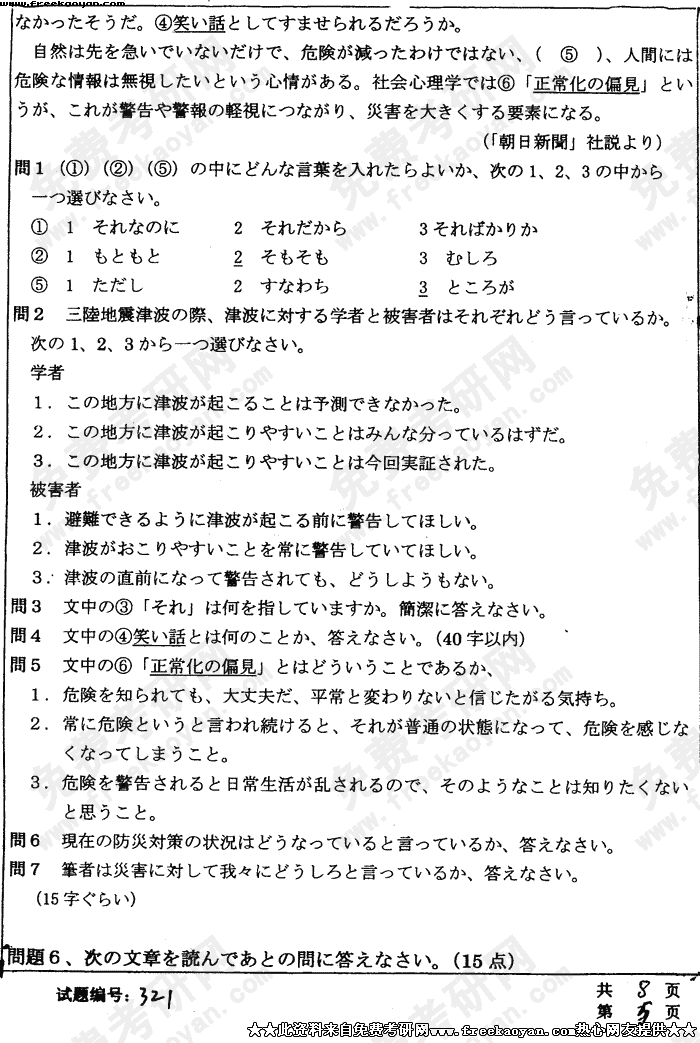 www.freekaoyan.com
なかったそうだ。④笑い話としてすませられるだろうか。
自然は先を急いでいないだけで、危険が減ったわけではない、( ⑤ )、人間には
危険な情報は無視したいという心情がある。社会心理学では⑥「正常化の偏見」とい
うが、これが警告や警報の軽視につながり、災害を大きくする要素になる。
(「朝日新聞」社説より)
問1 (①)(②)(⑤) の中にどんな言葉を入れたらよいか、次の1、2、3の中から
一つ選びなさい。
① 1 それなのに 2 それだから 3 そればかりか
② 1 もともと 2 そもそも 3 むしろ
⑤ 1 ただし 2 すなわち 3 ところが
問2 三陸地震津波の際、津波に対する学者と被害者はそれぞれどう言っているか。
次の1、2、3から一つ選びなさい。
学者
1．この地方に津波が起こることは予測できなかった。
2．この地方に津波が起こりやすいことはみんな分っているはずだ。
3．この地方に津波が起こりやすいことは今回実証された。
被害者
1．避難できるように津波が起こる前に警告してほしい。
2．津波がおこりやすいことを常に警告していてほしい。
3．津波の直前になって警告されても、どうしようもない。
問3 文中の③「それ」は何を指していますか。簡潔に答えなさい。
問4 文中の④笑い話とは何のことか、答えなさい。(40字以内)
問5 文中の⑥「正常化の偏見」とはどういうことであるか、
1．危険を知られても、大丈夫だ、平常と変わりないと信じたがる気持ち。
2．常に危険というと言われ続けると、それが普通の状態になって、危険を感じな
くなってしまうこと。
3．危険を警告されると日常生活が乱されるので、そのようなことは知りたくない
と思うこと。
問6 現在の防災対策の状況はどうなっていると言っているか、答えなさい。
問7 筆者は災害に対して我々にどうしろと言っているか、答えなさい。
(15字ぐらい)
問題6、次の文章を読んであとの問に答えなさい。(15点)
试题编号: 321 共 8 页
第 5 页
★★此资料来自免费考研网www.freekaoyan.com热心网友提供★★